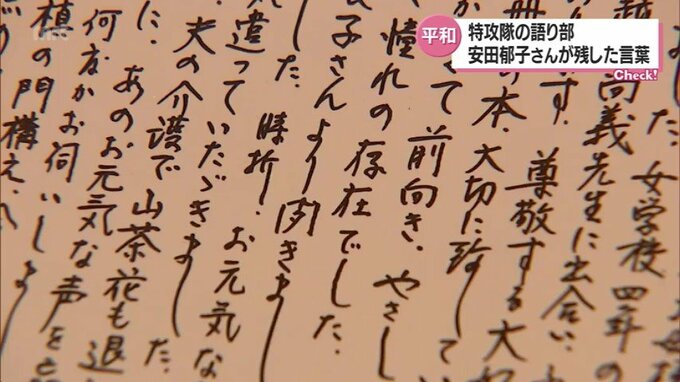 平和
特攻隊の語り部
安田郁子さんが残した言葉
Check!
した。女学校 四年の
尚義先生に出合い
です。尊敬する大
の本、大切に致してい
て 前向き、やさし
憧れの存在でした。
子さんより聞きまし
した。時折、お元気な
遣っていたゞきまし
夫の介護で山茶花も退
に、あのお元気な声を
何度かお伺いしま
植の門構え